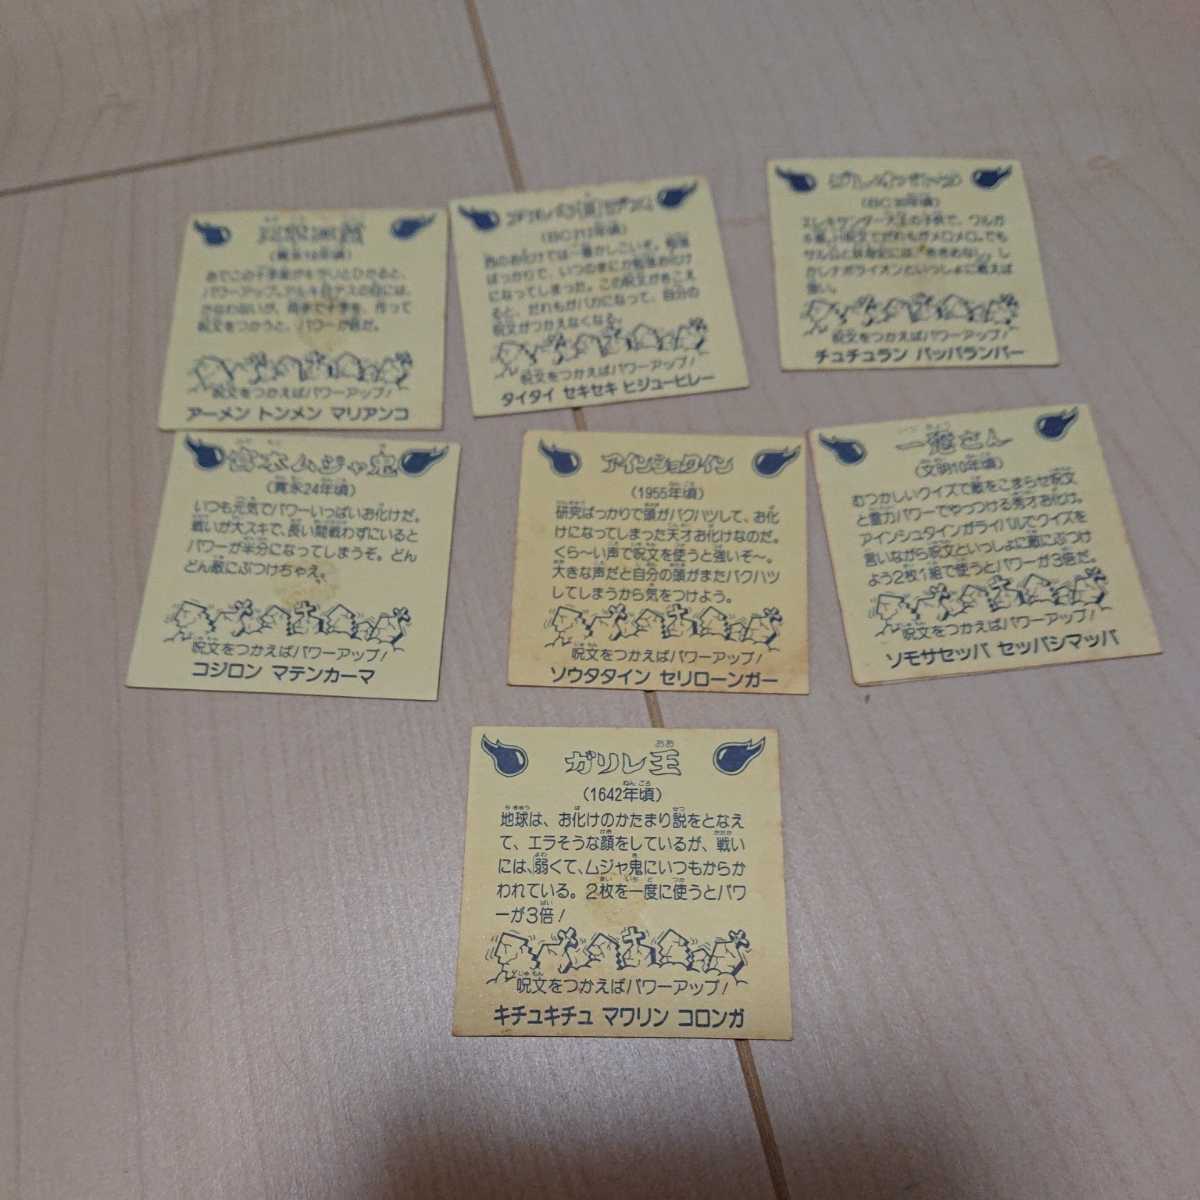 (寛永16年頃)
おでこの十字架がキラリとひかると、
パワーアップ。アルキ目デスの目には、
かなわないが、両手で十字を、作って
呪文をつかうと、パワーが倍だ。
呪文をつかえばパワーアップ!
アーメン トンメン マリアンコ
(BC212年頃)
西のお化けでは一番かしこいぞ。勉強
ばっかりで、いつのまにか勉強お化け
になってしまった。この呪文がきこえ
ると、だれもがバカになって、自分の
呪文がつかえなくなる。
呪文をつかえばパワーアップ!
タイタイ セキセキ ヒジューヒレー
(BC30年頃)
エレキサンダー大王の子供で、ワルガ
でだれもがメロメロ。でも
しかしナポライオンといっしょに戦えば
強い。
呪文をつかえばパワーアップ!
チュチュラン パッパランパー
宮本ムジャ鬼
(寛永24年頃)
いつも元気でパワーいっぱいお化けだ。
戦いが大スキで、長い間戦わずにいると
パワーが半分になってしまうぞ。どん
どん敵にぶつけちゃえ。
呪文をつかえばパワーアップ!
コジロン マテンカーマ
アインショタイン
(1955年頃)
研究ばっかりで頭がバクハツして、お化
けになってしまった天才お化けなのだ。
くら〜い声で呪文を使うと強いぞ〜。
大きな声だと自分の頭がまたバクハツ
してしまうから気をつけよう。
呪文をつかえばパワーアップ!
ソウタタイン セリローンガー
さん
(文明10年頃)
むつかしいクイズで敵をこまらせ呪文
と霊力パワーでやっつける秀才お化け。
アインシュタインがライバルでクイズを
言いながら呪文といっしょに敵にぶつけ
よう2枚1組で使うとパワーが3倍だ。
呪文をつかえばパワーアップ!
ソモサセッパ セッパシマッパ
ガリレ王
(1642年頃)
地球は、お化けのかたまり説をとなえ
て、エラそうな顔をしているが、戦い
には、弱くて、ムジャ鬼にいつもからか
われている。2枚を一度に使うとパワ
ーが3倍!
呪文をつかえばパワーアップ!
キチュキチュ マワリン コロンガ